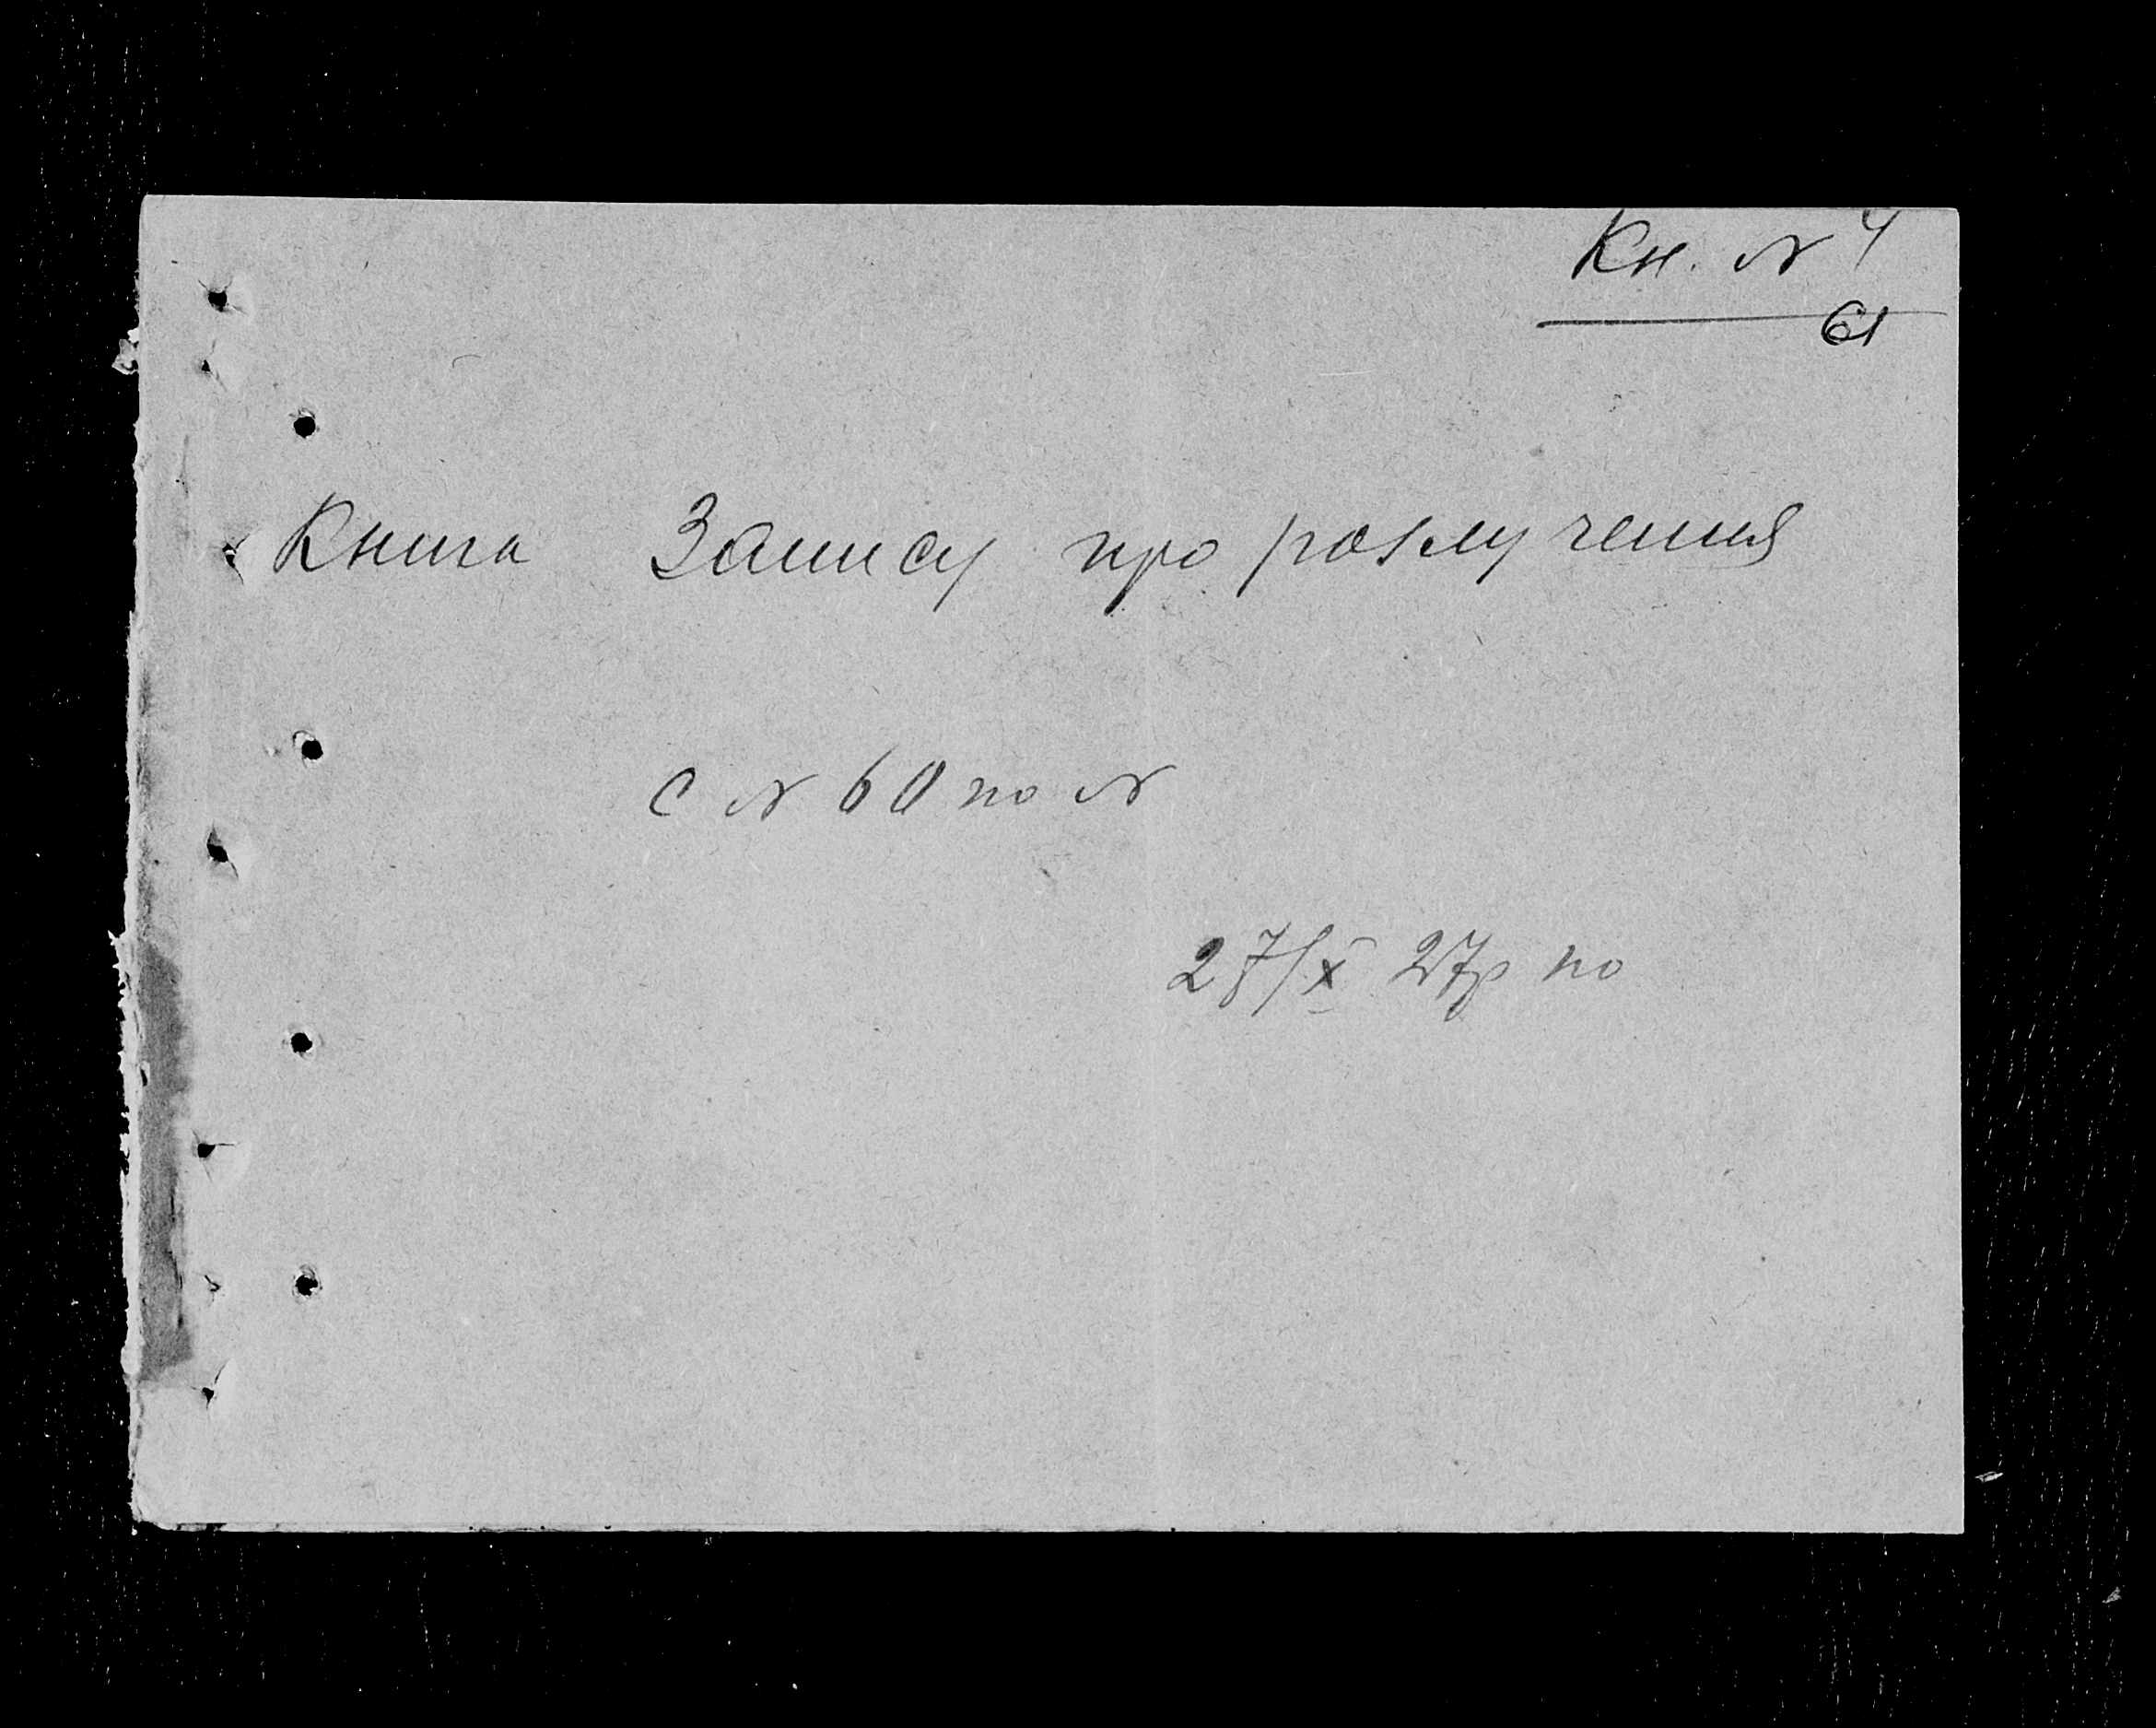 Кн. № 4
61
Книга Запису про розлучення
с № 60 по №
27/X 27р по